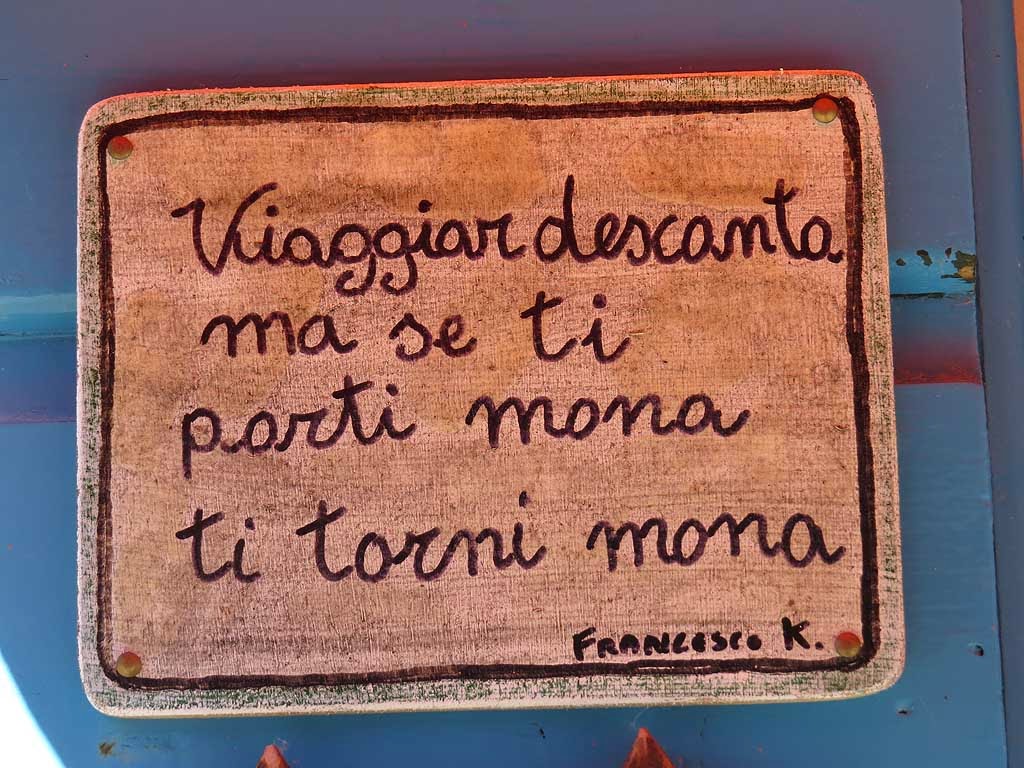 Viaggiar descanta
ma se ti
parti mona
ti torni mona
FRANCESCO K.